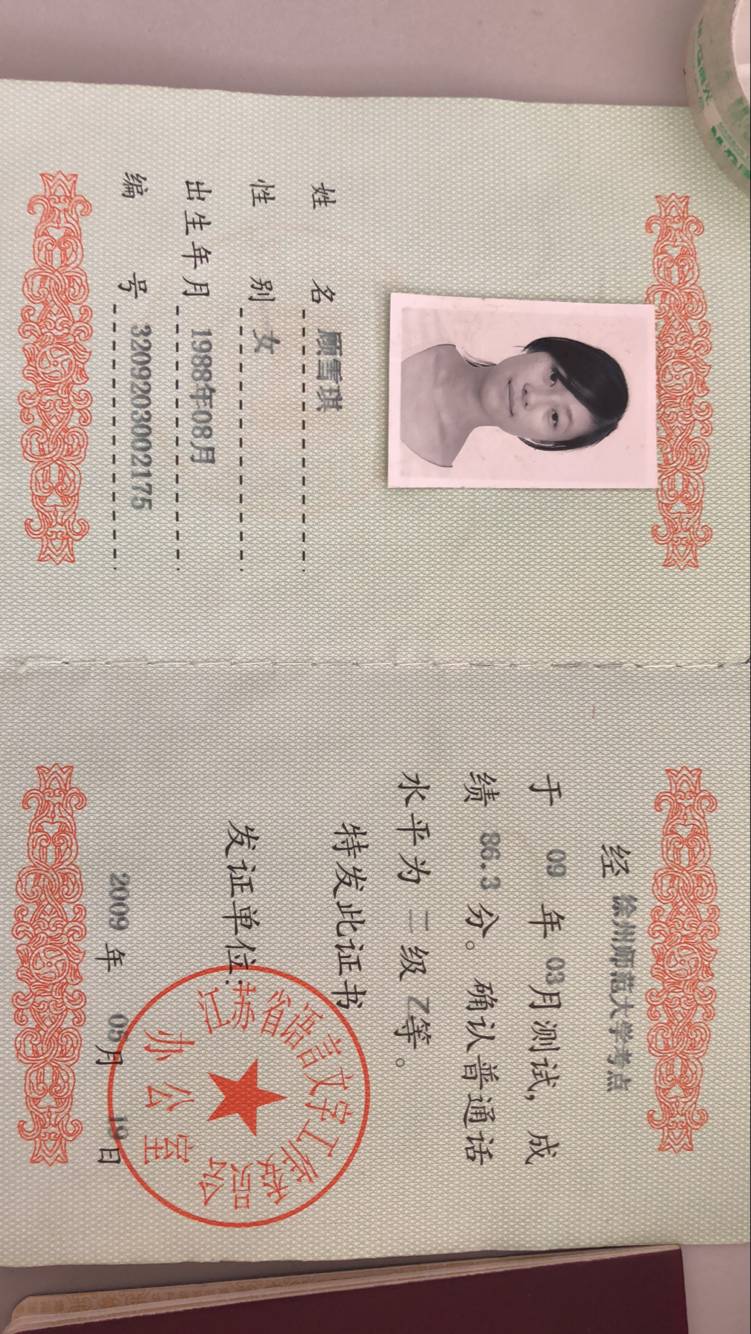 姓 名 顾雪琪
性 别 女
出生年月 1988年08月
编 号 3209203002175
经 徐州师范大学考点
于 09 年 03月测试，成
绩 86.3 分。确认普通话
水平为 二级 乙等。
特发此证书
发证单位：
江苏省语言文字工作委员会
办公室
2009 年 05月 19日